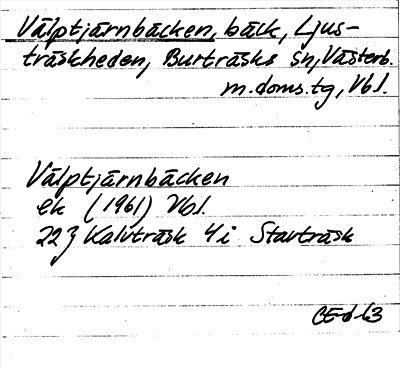 Välptjärnbäcken, bäck, Ljus-
träskheden, Burträsks sn, Västerb.
m.doms.tg, Vbl.
Välptjärnbäcken
ek (1961) Vbl.
22J Kalvträsk 4i Stavträsk